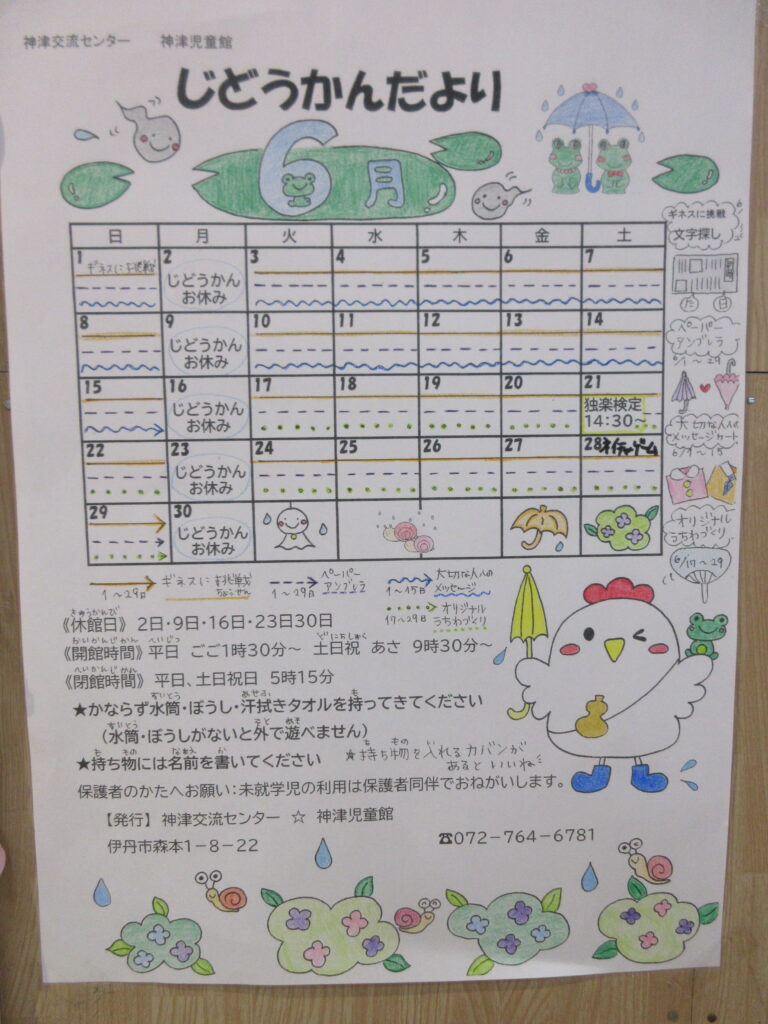 神津交流センター　神津児童館
じどうかんだより
6月
日 月 火 水 木 金 土
1 2 3 4 5 6 7
ギネスに挑戦
じどうかん
お休み
8 9 10 11 12 13 14
じどうかん
お休み
15 16 17 18 19 20 21
じどうかん
お休み
独楽検定
14:30~
22 23 24 25 26 27 28
じどうかん
お休み
29 30
じどうかん
お休み
ギネスに挑戦
文字探し
た 日
ペーパー
アンブレラ
6/1~29
大切な人への
メッセージカード
6/1~15
オリジナル
うちわづくり
6/17~29
1~29日 ギネスに挑戦 ちょうせん
1~29日 ペーパーアンブレラ
1~15日 大切な人へのメッセージ
17~29日 オリジナルうちわづくり
きゅうかんび
《休館日》 2日・9日・16日・23日30日
かいかんじかん へいじつ どにちしゅく
《開館時間》 平日 ごご1時30分~ 土日祝 あさ 9時30分~
へいかんじかん
《閉館時間》 平日、土日祝日 5時15分
すいとう あせふ も
★かならず水筒・ぼうし・汗拭きタオルを持ってきてください
すいとう そと あそ
(水筒・ぼうしがないと外で遊べません)
も もの なまえ か
★持ち物には名前を書いてください
も もの
★持ち物を入れるカバンが
あるといいね
保護者のかたへお願い：未就学児の利用は保護者同伴でおねがいします。
【発行】 神津交流センター ☆ 神津児童館
伊丹市森本1-8-22
☎072-764-6781